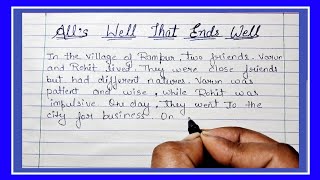 All's Well That Ends Well
In the village of Rampur, two friends. Varun
and Rohit lived. They were close friends
but had different natures. Varun was
patient and wise, while Rohit was
impulsive One day, They went To the
city for business. On